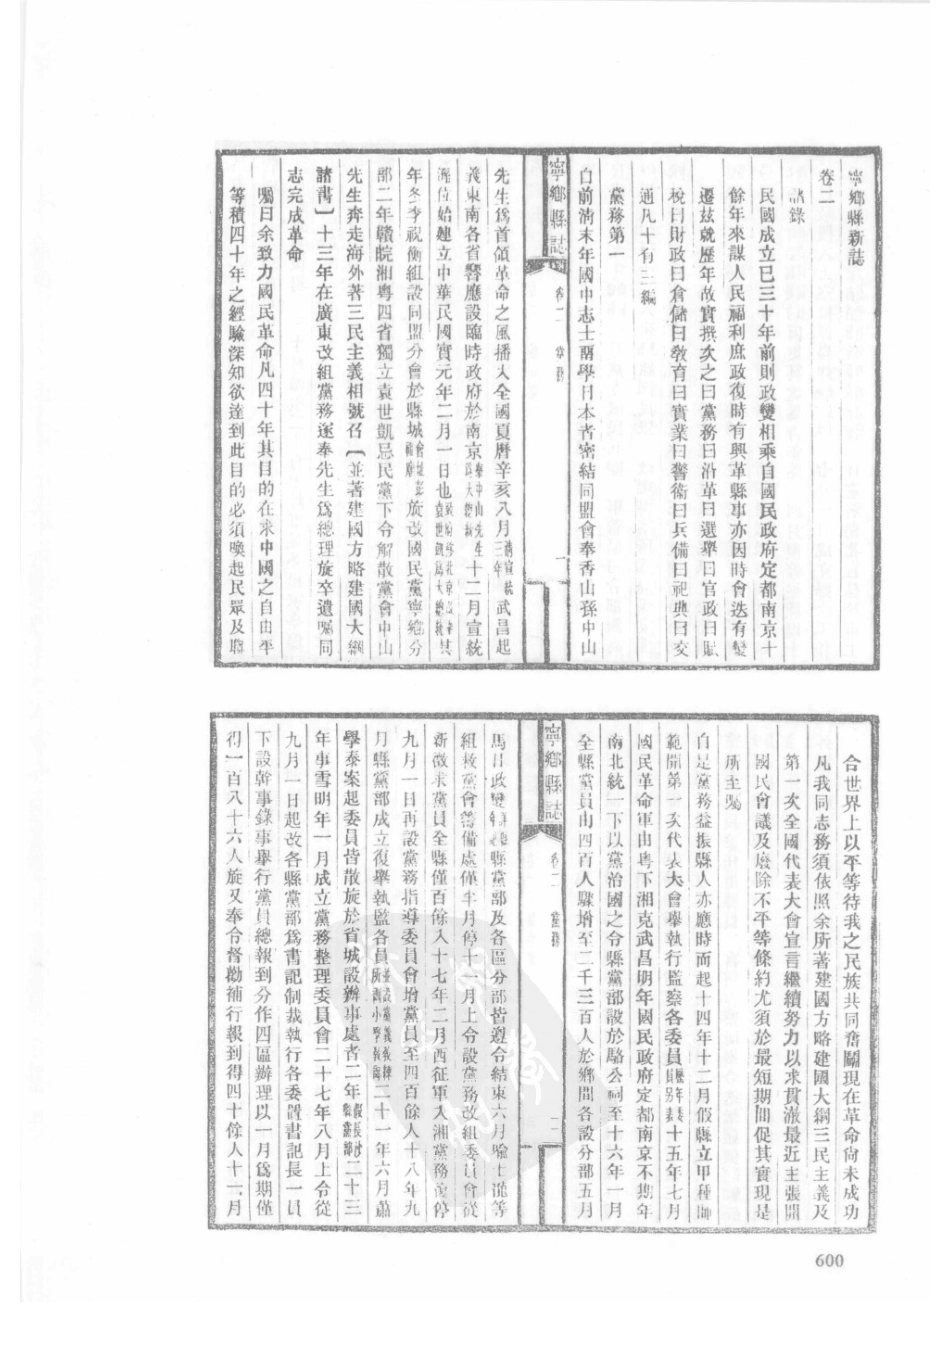 寧鄉縣新誌
卷二
故錄
民國成立已三十年前則政變相乘自國民政府定都南京十
餘年來謀人民福利庶政復時有興革縣事亦因時會迭有變
遷茲就歷年故實撰次之曰黨務曰沿革曰選舉曰官政曰賦
稅曰財政曰倉儲曰教育曰實業曰警衞曰兵備曰祀典曰交
通凡十有三編
黨務第一
自前淸末年國中志士留學日本者密結同盟會奉香山孫中山
寧鄉縣誌
卷二 黨務
一
先生爲首領革命之風播大全國夏曆辛亥八月淸宣統三年武昌起
義東南各省響應設臨時政府於南京舉中山先生爲大總統十二月宣統
遜位始建立中華民國實元年二月一日也袁世凱爲大總統其
年冬李祝衡組設同盟分會於縣城旋改國民黨寧鄉分
部二年贛皖湘粵四省獨立袁世凱忌民黨下令解散黨會中山
先生奔走海外著三民主義相號召【並著建國方略建國大綱
諸書】十三年在廣東改組黨務遂奉先生爲總理旋卒遺囑同
志完成革命
囑曰余致力國民革命凡四十年其目的在求中國之自由平
等積四十年之經驗深知欲達到此目的必須喚起民眾及聯
合世界上以平等待我之民族共同奮鬬現在革命尙未成功
凡我同志務須依照余所著建國方略建國大綱三民主義及
第一次全國代表大會宣言繼續努力以求貫澈最近主張開
國民會議及廢除不平等條約尤須於最短期間促其實現是
所至囑
自是黨務益振縣人亦應時而起十四年十二月假縣立甲種師
範開第一次代表大會舉執行監察各委員歷年表別見十五年七月
國民革命軍由粵下湘克武昌明年國民政府定都南京不期年
南北統一下以黨治國之令縣黨部設於駱公祠至十六年一月
全縣黨員由四百人驟增至二千三百人於鄉間各設分部五月
寧鄉縣誌
卷二 黨務
二
馬日政變縣黨部及各區分部皆遵令結束六月等
組校黨會籌備處僅半月停十一月上令設黨務改組委員會從
新徵求黨員全縣僅百餘人十七年二月西征軍入湘黨務復停
九月一日再設黨務指導委員會增黨員至四百餘人十八年九
月縣黨部成立復舉執監各員二十一年六月蕭
學泰案起委員皆散旋於省城設辦事處者二年二十三
年事雪明年一月成立黨務整理委員會二十七年八月上令從
九月一日起改各縣黨部爲書記制裁執行各委置書記長一員
下設幹事錄事舉行黨員總報到分作四區辦理以一月爲期僅
得一百八十六人旋又奉令督勸補行報到得四十餘人十一月
600